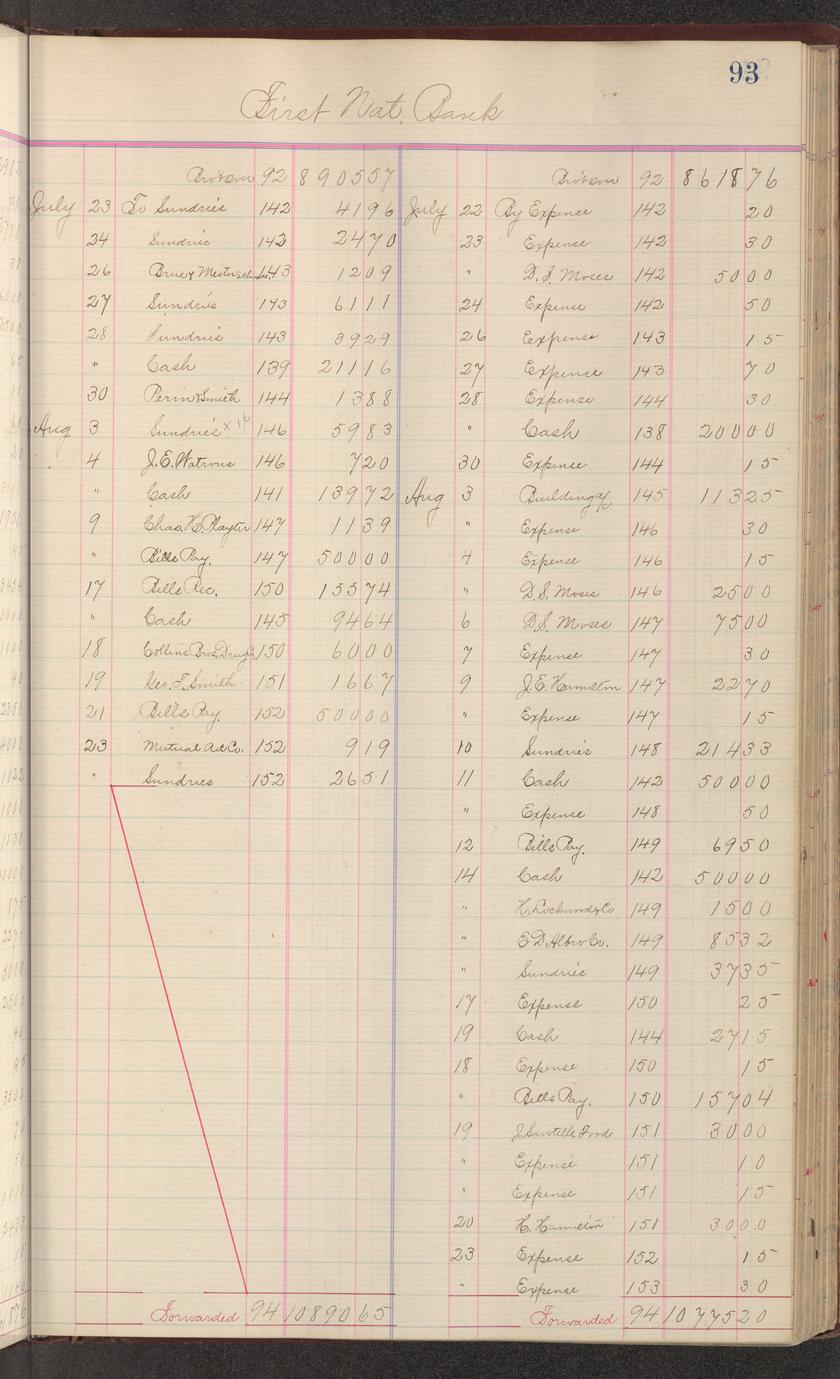 93
First Nat. Bank
Bro't over 92 8905 57
July 23 To Sundries 142 41 96
24 Sundries 142 24 70
26 143 12 09
27 Sundries 143 61 11
28 Sundries 143 39 29
" Cash 139 211 16
30 Perin & Smith 144 13 88
Aug 3 Sundries 146 59 83
4 J. E. Watrous 146 7 20
" Cash 141 139 72
9 Chas. H. Playter 147 11 39
" Bills Pay. 147 500 00
17 Bills Rec. 150 155 74
" Cash 145 94 64
18 Collins Bros. Drug 150 60 00
19 Geo. F. Smith 151 16 67
21 Bills Pay. 152 500 00
23 Mutual Co. 152 9 19
" Sundries 152 26 51
Forwarded 94 10890 65
Bro't over 92 8618 76
July 22 By Expense 142 20
23 Expense 142 30
" D. S. Moses 142 50 00
24 Expense 142 50
26 Expense 143 15
27 Expense 143 70
28 Expense 144 30
" Cash 138 200 00
30 Expense 144 15
Aug 3 Building a/c 145 113 25
" Expense 146 30
4 Expense 146 15
" D. S. Moses 146 25 00
6 D. S. Moses 147 75 00
7 Expense 147 30
9 J. E. Hamilton 147 22 70
" Expense 147 15
10 Sundries 148 214 33
11 Cash 142 500 00
" Expense 148 50
12 Bills Pay. 149 69 50
14 Cash 142 500 00
" H. Lockwood & Co 149 15 00
" E. D. Albro Co. 149 85 32
" Sundries 149 37 35
17 Expense 150 25
19 Cash 144 27 15
18 Expense 150 15
" Bills Pay. 150 157 04
19 J. Sawtelle Ford 151 30 00
" Expense 151 10
" Expense 151 15
20 H. Hamilton 151 30 00
23 Expense 152 15
" Expense 153 30
Forwarded 94 10775 20